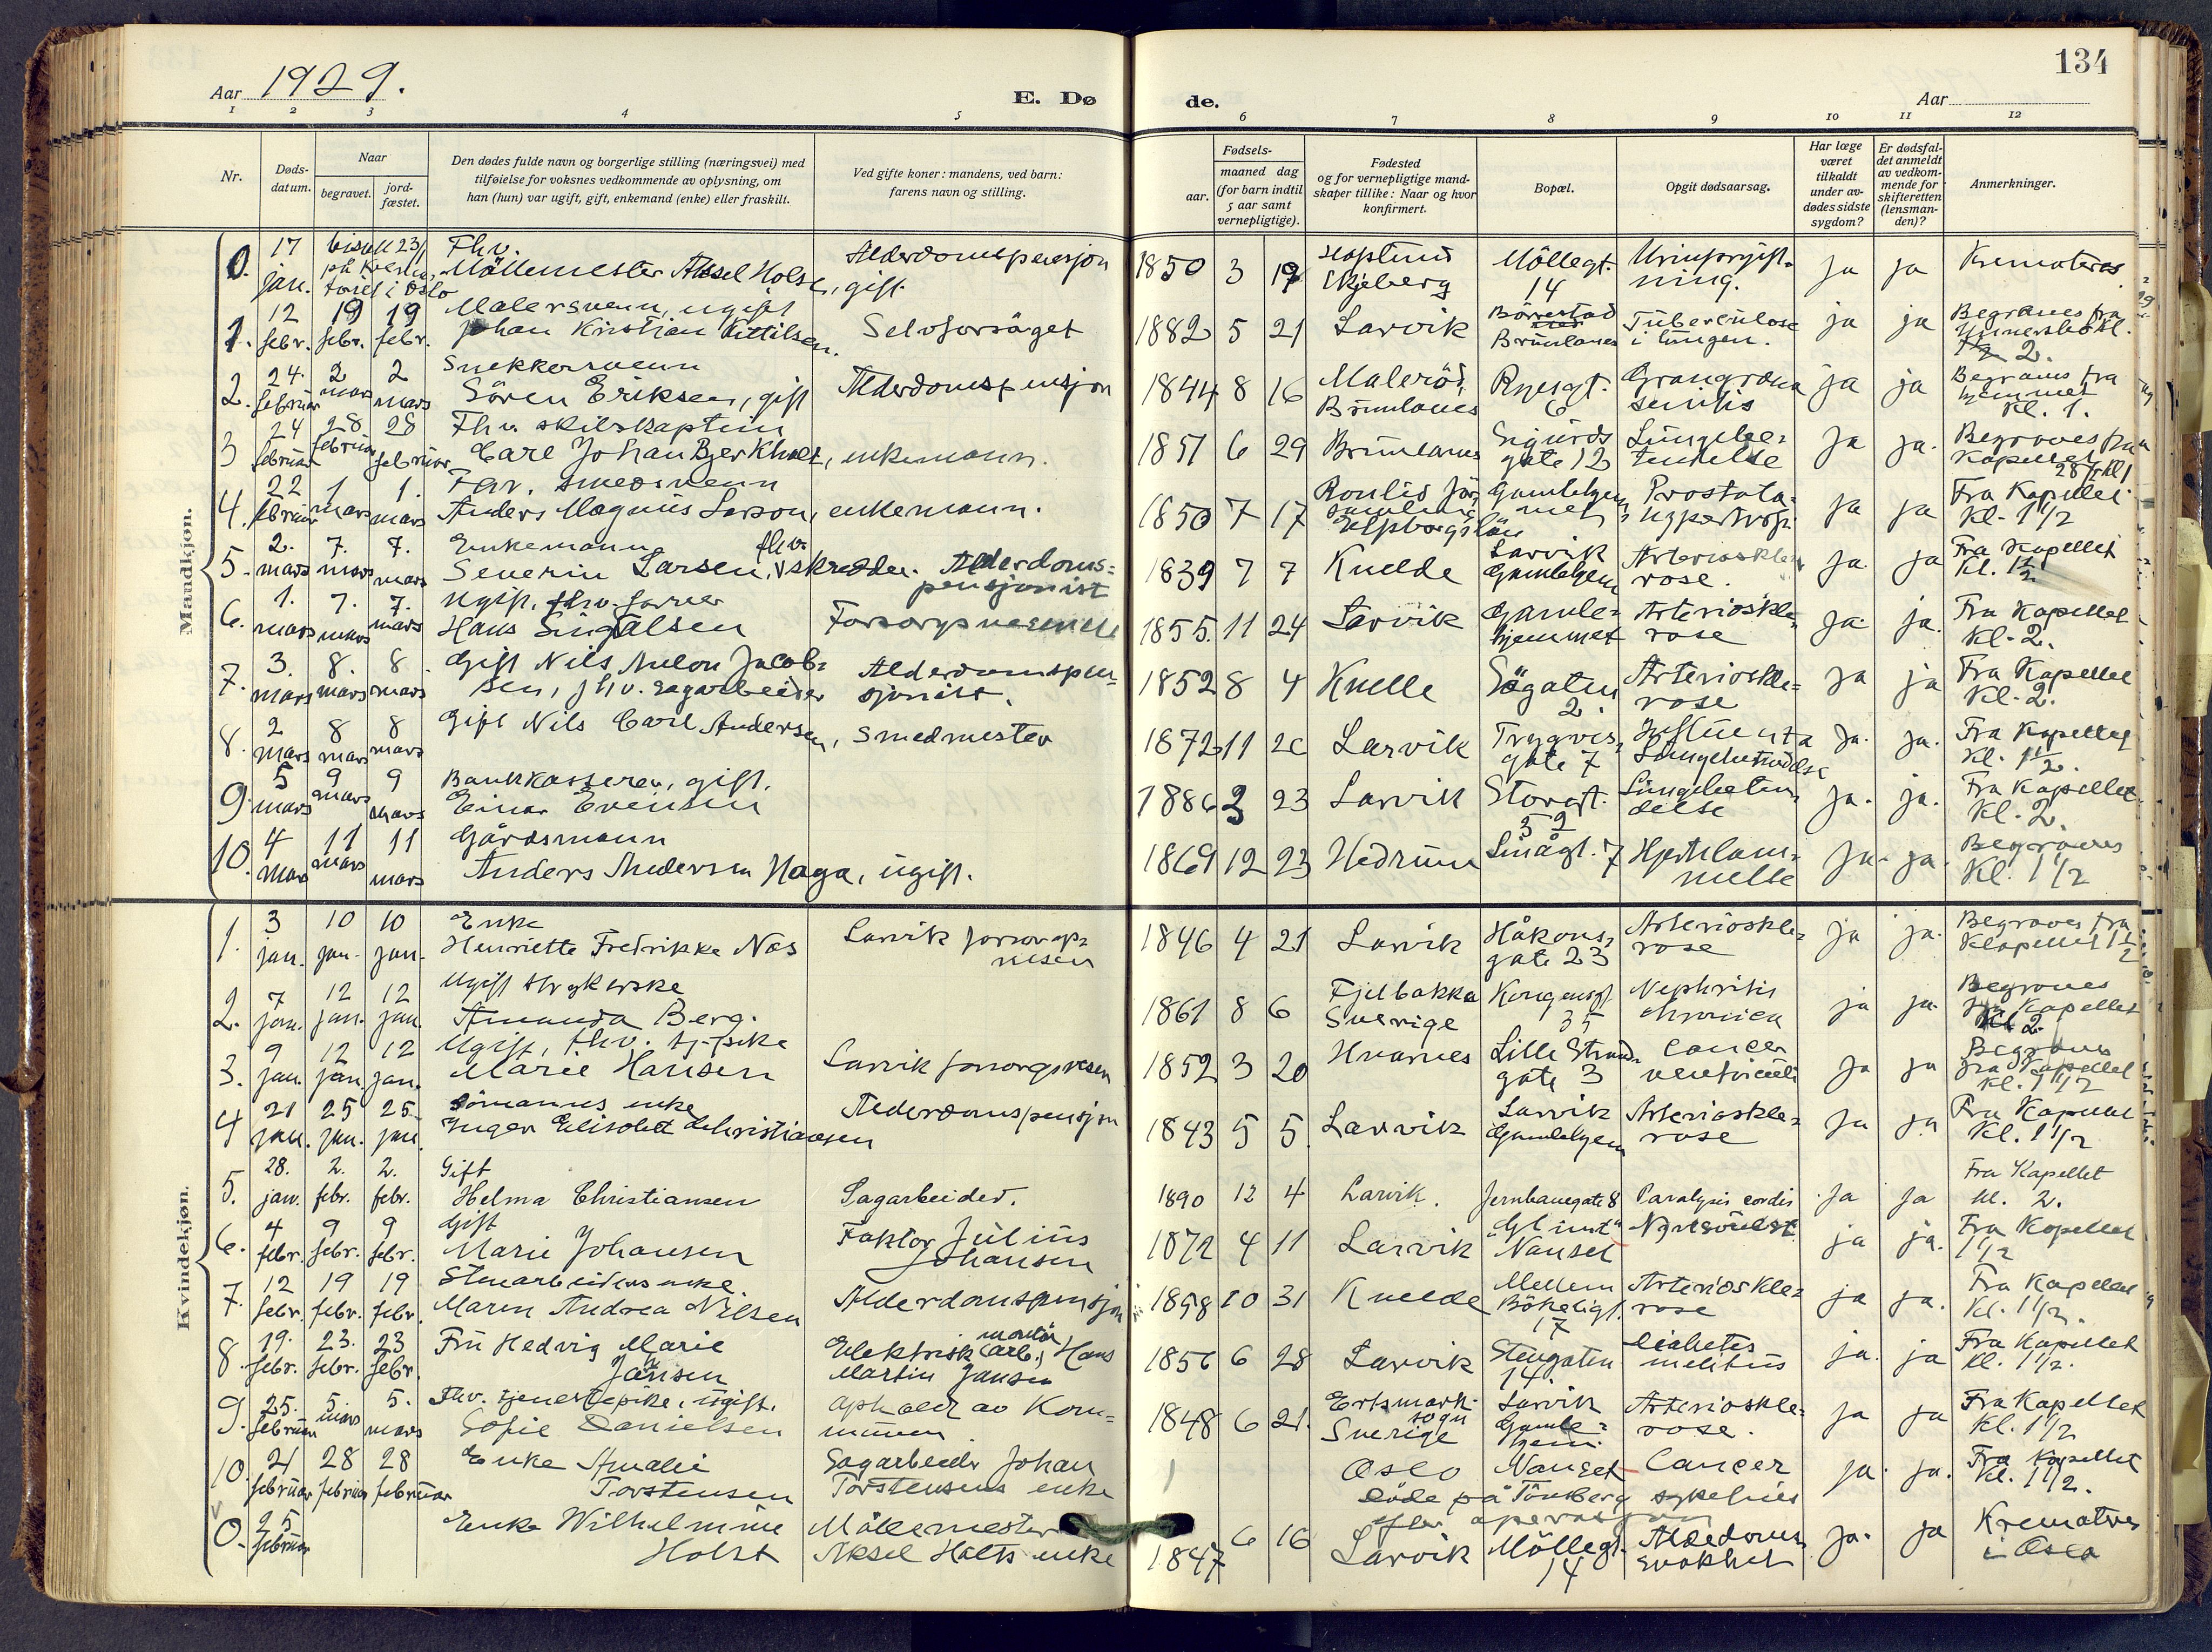 134
Aar 1929.
E. Dø
de.
Aar
1 2 3 4 5 6 7 8 9 10 11 12
Nr.
Døds-
datum.
Naar
begravet.
jord-
fæstet.
Den dødes fulde navn og borgerlige stilling (næringsvei) med
tilføielse for voksnes vedkommende av oplysning, om
han (hun) var ugift, gift, enkemand (enke) eller fraskilt.
Ved gifte koner: mandens, ved barn:
farens navn og stilling.
Fødsels-
aar.
maaned dag
(for barn indtil
5 aar samt
vernepligtige).
Fødested
og for vernepligtige mand-
skaper tillike: Naar og hvor
konfirmert.
Bopæl.
Opgit dødsaarsag.
Har læge
været
tilkaldt
under av-
dødes sidste
sygdom?
Er dødsfal-
det anmeldt
av vedkom-
mende for
skifteretten
(lensman-
den)?
Anmerkninger.
Mandkjøn.
0. 17 jan. Fhv.
Möllemester Aksel Holst, gift Alderdomspensjon 1850 3 19 Skjeberg Möllegt. 14 Urinforgift-
ning. ja ja Kremeteres
1. 12 febr. 19 febr. 19 febr. Malersvenn, ugift
Johan Kristian Kittilsen. Selvforsörget 1882 5 21 Larvik Brunlanes Tuberculose
i lungen. ja ja Begraves fra
kl.
2.
2. 24. februar 2 mars 2 mars Snekkersvenn
Sören Eriksen, gift Alderdomspensjon 1844 8 16 Maleröd,
Brunlanes 6 senilis ja ja Begraves fra
hjemmet
Kl. 1.
3 24 februar 28. februar 28 februar Fhv. skibskaptein
Carl Johan Bjerkholt, enkemann. 1851 6 29 Brunlanes Sigurds
gate 12 Lungebe-
tendelse ja ja. Begraves fra
Kapellet
4. 22 februar 1 mars 1. mars Fhv. smedsvenn
Anders Magnus Larson, enkemann. 1850 7 17 Gamlehjem-
met Prostata-
hypertrofi ja ja Fra Kapellet
Kl. 1 1/2
5. 2. mars 7. mars 7. mars Enkemann
Severin Larsen, fhv. skredder. Alderdoms-
pensjonist 1839 7 7 Kvelde Larvik
Gamlehjem Arterioskle-
rose. ja ja Fra Kapellet
Kl. 1 1/2
6. 1. mars 7. mars 7. mars Ugift, fhv. farver
Hans Forsorgsvesenet 1855. 11 24 Larvik Gamle-
hjemmet Arterioskle-
rose ja ja. Fra Kapellet
Kl. 2.
7. 3. mars 8. mars 8. mars Gift Nils Anton Jacob-
sen, fhv. sagarbeider Alderdomspen-
sjonist. 1852 8 4 Kvelle 2. Arterioskle-
rose ja ja Fra Kapellet
Kl. 2.
8. 2 mars 8 mars 8 mars Gift Nils Carl Andersen, smedmester 1872 11 20 Larvik Trygves-
gate 7 Influenza
Lungebetendelse ja. ja. Fra Kapellet
Kl. 1 1/2.
9. 5 mars 9 mars 9 mars Bankkasserer, gift.
Einar Evensen 1886 2 23 Larvik Storgt.
52 Lungebeten-
delse ja. ja. Fra Kapellet
Kl. 2.
10. 4 mars 11 mars 11 mars Gårdsmann
Anders Andersen Haga, ugift. 1869 12 23 Hedrum Smågt. 7 Hjertelam-
melse ja. ja. Begraves
Kl. 1 1/2
Kvindekjøn.
1. 3 jan. 10 jan. 10 jan. Enke
Henriette Fredrikke Næs Larvik forsorgs-
vesen 1846 4 21 Larvik Håkons-
gate 23 Arterioskle-
rose ja ja. Begraves fra
Kapellet 1 1/2
2. 7 jan. 12 jan. 12 jan. Ugift strykerske
Amanda Berg. 1861 8 6 Fjelbakka
Sverige Kongensgt.
35 Nephritis
chronica ja ja. Begraves
fra Kapellet
Kl 2
3. 9 jan. 12 jan. 12 jan. Ugift, fhv. tj.pike
Marie Hansen Larvik forsorgsvesen 1852 3 20 Hvarnes Lille Strand-
gate 3 Cancer
ventriculi ja ja Begraves
fra Kapellet
kl. 1 1/2
4 21 jan. 25 jan. 25 jan Sömanns enke
Inger Elisabet Christiansen Alderdomspensjon 1843 5 5. Larvik Larvik
Gamlehjem Arterioskle-
rose ja ja Fra Kapellet
Kl. 1 1/2
5. 28. jan. 2. febr. 2. febr. Gift
Helma Christiansen Sagarbeider. 1890 12 4 Larvik. Jernbanegate 8 Paralysis cordis ja ja Fra Kapellet
kl. 2.
6. 4 febr. 9 febr. 9 febr. Gift
Marie Johansen Faktor Julius
Johansen 1872 4 11 Larvik Nanset Nyresvulst ja ja. Fra Kapellet
1 1/2
7. 12 febr. 19 febr. 19 febr. Stenarbeiders enke
Maren Andrea Nilsen Alderdomspensjon 1858 10 31 Kvelde Mellem
Bökeligt.
17 Arterioskle-
rose ja ja. Fra Kapellet
Kl. 1 1/2.
8. 19. febr. 23. febr. 23 febr. Fru Hedvig Marie
Jansen Elektrisk montör (arb.) Hans
Martin Jansen 1856 6 28 Larvik Stengaten
14. Diabetes
melitus ja. ja Fra Kapellet
Kl. 1 1/2.
9. 25. februar 5 mars 5. mars Fhv. tjenestepike, ugift.
Sofie Danielsen ophold av Kom-
munen 1848 6 21. Ertsmark
sogn
Sverige Larvik
Gamle-
hjem. Arterioskle-
rose. ja ja Fra Kapellet
Kl. 1 1/2
10. 21 februar 28 februar 28 februar Enke Amalie
Torstensen Sagarbeider Johan
Torstensens enke Oslo Nanset Cancer ja. ja. Fra Kapellet
Kl. 1 1/2.
döde på Tönsberg sykehus
efter operasjon
0. 25 februar Enke Wilhelmine
Holst Möllemester
Aksel Holts enke 1847 6 16 Larvik Möllegt.
14 Alderdoms
svakhet ja. ja Kremeteres
i Oslo